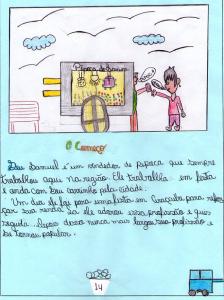 Pipoca do Samuel
O Começo
Seu Samuel é um vendedor de Pipoca que sempre
trabalhou aqui na região. Ele trabalha em festa
e anda com seu carrinho pela cidade.
Um dia ele foi para uma festa em para refor
çar sua renda la ele adorou essa profissão e quis
seguila Apos desso nunca mais largou sua profissão e
se tornou popular.
14